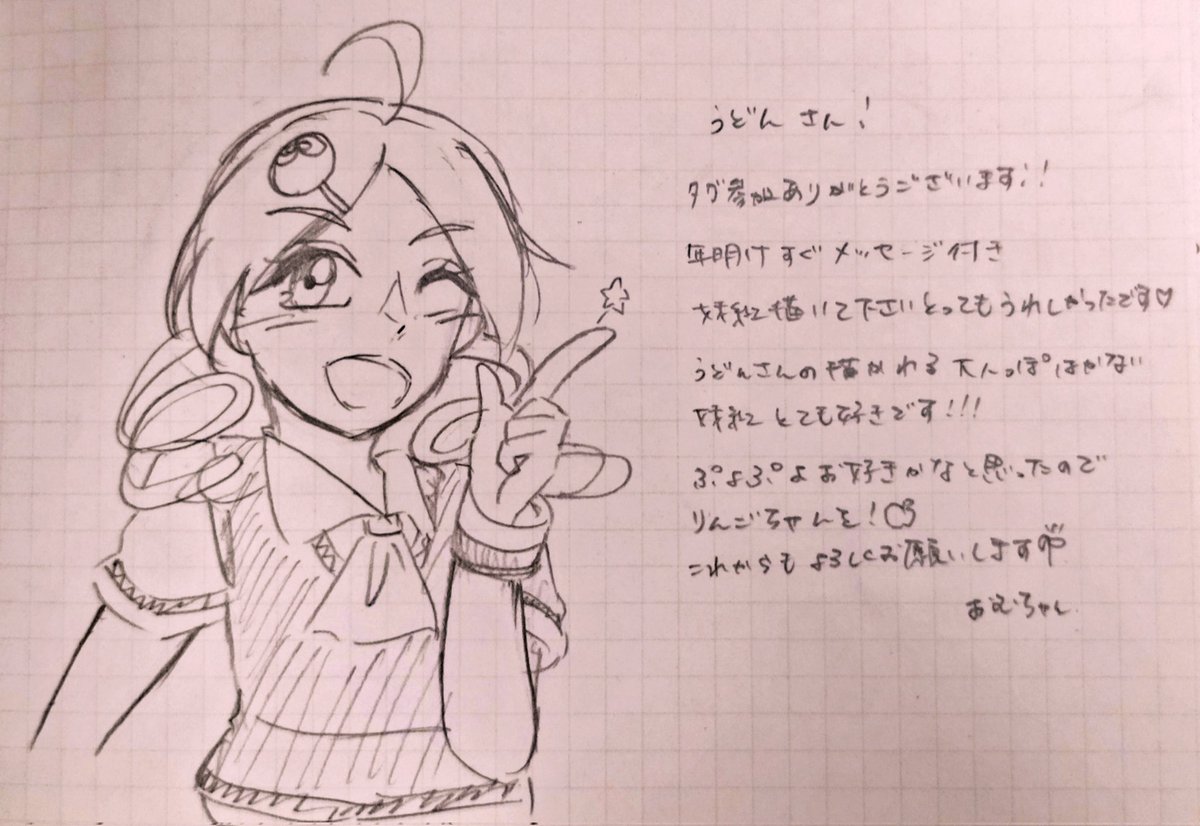 うどんさん!
タグ参加ありがとうございます!!
年明けすぐメッセージ付き
妹紅描いて下さいとってもうれしかったです♡
うどんさんの描かれる大人っぽはかない
妹紅とても好きです!!!
ぷよぷよお好きかなと思ったので
りんごちゃんを!
これからもよろしくお願いします
おむちゃん